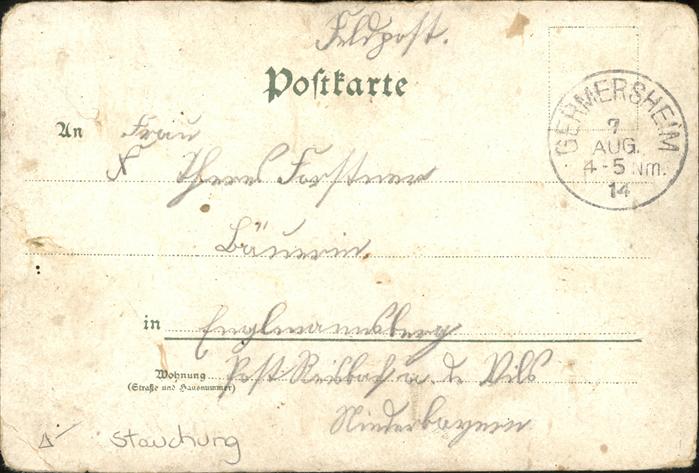 Feldpost.
Postkarte
GERMERSHEIM
7
AUG.
4-5 Nm.
14
An Frau
Theres Forstner
Bäuerin.
in Englmannsberg
Wohnung
(Straße und Hausnummer)
Post Reisbach a. d. Vils
Niederbayern
Stauchung